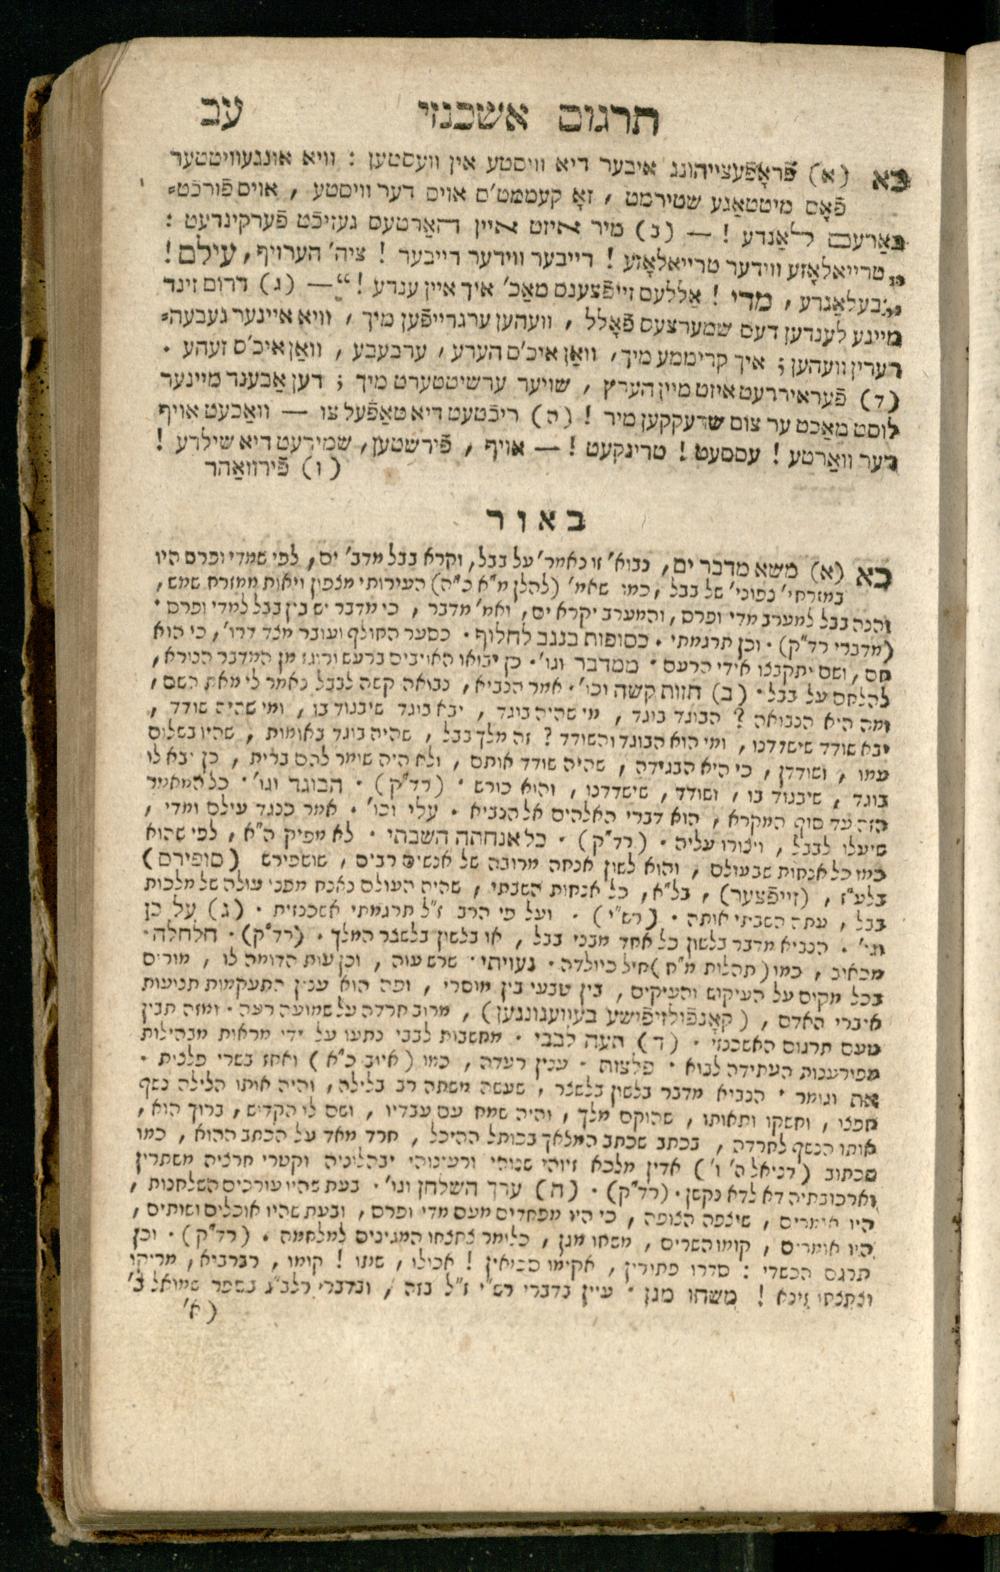 תרגום אשכנזי עב
כא (א) פֿראָפֿעצייהונג איבער דיא וויסטע אין וועסטען : וויא אונגעוויטטער
פֿאָם מיטטאַגע שטירמט , זאָ קעממט'ס אויס דער וויסטע , אויס פֿורכֿט⸗
באַרעם לאַנדע ! — (ב) מיר איזט איין האַרטעס געזיכֿט פֿערקינדעט :
„טרייאלאָזע ווידער טרייאלאָזע ! רייבער ווידער רייבער ! ציה' הערויף , עילם !
„בעלאַגרע , מדי ! אַללעם זייפֿצענס מאַכ' איך איין ענדע !“ — (ג) דרום זינד
מיינע לענדען דעס שמערצעס פֿאָלל , וועהען ערגרייפֿען מיך , וויא איינער געבעה⸗
רערין וועהען ; איך קריממע מיך , וואַן איכ'ס הערע , ערבעבע , וואַן איכ'ס זעהע .
(ד) פֿעראיררעט איזט מיין הערץ , שויער ערשיטטערט מיך ; דען אַבענד מיינער
לוסט מאַכט ער צום שרעקקען מיר ! (ה) ריכֿטעט דיא טאַפֿעל צו — וואַכעט אויף
דער וואַרטע ! עססעט ! טרינקעט ! — אויף , פֿירשטען , שמירעט דיא שילדע !
(ו) פֿירוואַהר
באור
כא (א) משא מדבר ים , נבוא' זו נאמר' על בבל , וקרא בבל מדב' ים , לפי שמדי ופרס היו
במזרחי' צפוני' של בבל , כמו שאמ' (להלן מ"א כ"ה) העירותי מצפון ויאת ממזרח שמש ,
והנה בבל למערב מדי ופרס , והמערב יקרא ים , ואמ' מדבר , כי מדבר יש בין בבל למדי ופרס .
(מדברי רד"ק) . וכן תרגמתי . כסופות בנגב לחלוף . כסער החולף ועובר מצד דרו' , כי הוא
חם , ושם יתקבצו אידי הרעם . ממדבר וגו' . כן יבואו האויבים ברעש ורוגז מן המדבר הנורא ,
להלחם על בבל . (ב) חזות קשה וכו' . אמר הנביא , נבואה קשה לבבל נאמר לי מאת השם ,
ומה היא הנבואה ? הבוגד בוגד , מי שהיה בוגד , יבא בוגד שיבגוד בו , ומי שהיה שודד ,
יבא שודד שישדדנו , ומי הוא הבוגד והשודד ? זה מלך בבל , שהיה בוגד באומות , שהיו בשלום
עמו , ושודדן , כי היא הבגידה , שהיה שודד אותם , ולא היה שומר להם ברית , כן יבא לו
בוגד , שיבגוד בו , ושודד , שישדדנו , והוא כורש . (רד"ק) . הבוגד וגו' . כל המאמר
הזה עד סוף המקרא , הוא דברי האלהים אל הנביא . עלי וכו' . אמר כנגד עילם ומדי ,
שיעלו לבבל , ויצורו עליה . (רד"ק) . כל אנחתה השבתי . לא מפיק ה"א , לפי שהוא
כמו כל אנחות שבעולם , והוא לשון אנחה מרובה של אנשים רבים , שושפירש (סופירם)
בלע"ז , (זייפֿצער) , בל"א , כל אנחות השבתי , שהיה העולם נאנח מפני עולה של מלכות
בבל , עתה השבתי אותה . (רש"י) . ועל פי הרב ז"ל תרגמתי אשכנזית . (ג) על כן
וגו' . הנביא מדבר בלשון כל אחד מבני בבל , או בלשון בלשצר המלך . (רד"ק) . חלחלה .
מכאיב , כמו (תהלות מ"ח) חיל כיולדה . נעויתי . שרש עוה , וכן עות הדומה לו , מורים
בכל מקום על העיקוש והעיקום , בין טבעי בין מוסרי , ופה הוא ענין התעקמות תנועות
איברי האדם , (קאָנפֿולזיפֿישע בעוועגונגען) , מרוב חרדה על שמועה רעה . ומזה תבין
טעם תרגום האשכנזי . (ד) תעה לבבי . מחשבות לבבי נתעו על ידי מראות מבהילות
מפורענות העתידה לבוא . פלצות . ענין רעדה , כמו (איוב כ"א) ואחז בשרי פלצות .
את וגומר . הנביא מדבר בלשון בלשצר , שעשה משתה רב בלילה , והיה אותו הלילה נשף
חפצו , וחשקו ותאותו , שהוקם מלך , והיה שמח עם עבדיו , ושם לו הקדוש , ברוך הוא ,
אותו הנשף לחרדה , בכתב שכתב המלאך בכותל ההיכל , חרד מאד על הכתב ההוא , כמו
שכתוב (דניאל ה' ו') אדין מלכא זיוהי שנוהי ורעיונוהי יבהלוניה וקטרי חרציה משתרין
וארכובתיה דא לדא נקשן . (רד"ק) . (ה) ערך השלחן וגו' . בעת שהיו עורכים השלחנות ,
היו אומרים , שיצפה הצופה , כי היו מפחדים מעם מדי ופרס , ובעת שהיו אוכלים ושותים ,
היו אומרים , קומו השרים , משחו מגן , כלומר צחצחו המגינים למלחמה . (רד"ק) . וכן
תרגם הכשדי : סדרו פתורין , אקימו סכואין ! אכולו , שתו ! קומו , רברביא , מריקו
וצחצחו זינא ! משחו מגן . עיין בדברי רש"י ז"ל בזה , ובדברי רלב"ג בספר שמואל ב'
(א'